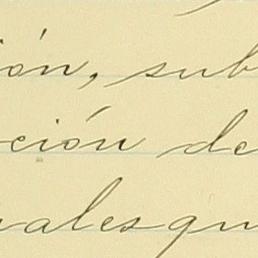 ión, sub
ción de
ualesqu